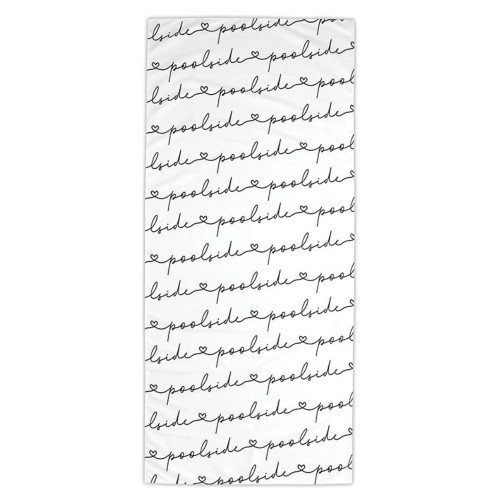 lside poolside
poolside poolside
lside poolside pool
poolside poolside
lside poolside pool
poolside poolside
lside poolside pool
poolside poolside
lside poolside pool
poolside poolside
lside poolside pool
poolside poolside
lside poolside pool
poolside poolside
lside poolside pool